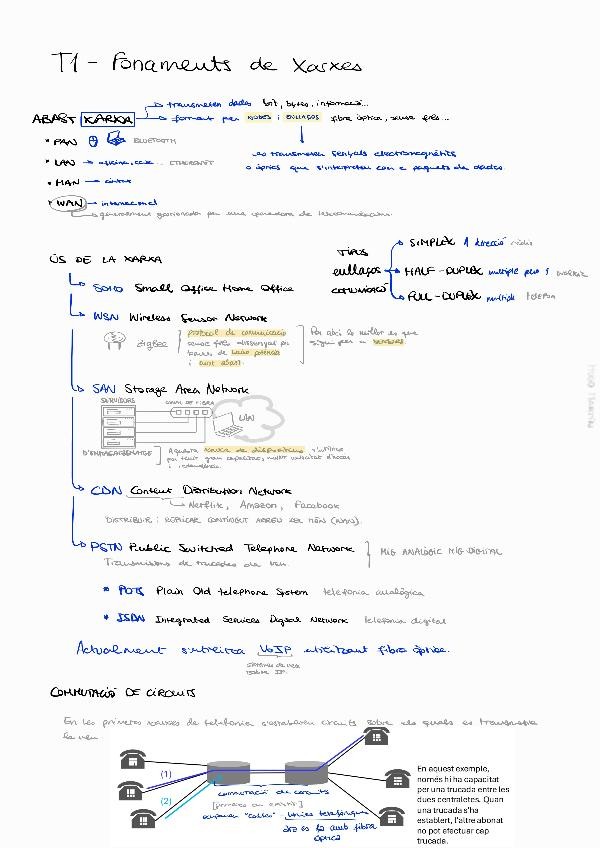 T1 - Fonaments de Xarxes
transmeten dades bit, bytes, informació...
ABAST XARXA format per NODES i ENLLAÇOS fibra òptica, sense fils...
PAN BLUETOOTH
es transmeten senyals electromagnètics
LAN oficina, casa... ETHERNET
o òptics que s'interpreten com a paquets de dades.
MAN ciutat
WAN internacional
generalment gestionada per una operadora de telecomunicacions.
ÚS DE LA XARXA
TIPUS
enllaços
COMUNICACIÓ
SIMPLEX 1 direcció ràdio
HALF-DUPLEX multiple però 1
FULL-DUPLEX multiple telefon
SOHO Small Office Home Office
WSN Wireless Sensor Network
ZigBee
protocol de comunicació
sense fils dissenyat per
baixa potència
i curt abast.
Per això és millor es que
sigui per a sensors.
SAN Storage Area Network
SERVIDORS
CANAL DE FIBRA
LAN
D'EMMAGATZEMATGE
Aquesta xarxa de dispositius s'utilitza
per tenir gran capacitat, millor velocitat d'accés
CDN Content Distribution Network
Netflix, Amazon, Facebook
DISTRIBUIR: REPLICAR CONTINGUT ARREU DEL MÓN (WAN).
PSTN Public Switched Telephone Network
MIG ANALÒGIC MIG DIGITAL
Transmissions de trucades de veu.
POTS Plain Old telephone System telefonia analògica
ISDN Integrated Services Digital Network telefonia digital
Actualment s'utilitza VoIP utilitzant fibra òptica.
sistema de veu
sobre IP.
COMMUTACIÓ DE CIRCUITS
En les primeres xarxes de telefonia s'establien circuits sobre els quals es transmetia
la veu.
(1)
(2)
commutació de circuits
línies telefòniques
ara es fa amb fibra
òptica
En aquest exemple,
només hi ha capacitat
per una trucada entre les
dues centraletes. Quan
una trucada s'ha
establert, l'altre abonat
no pot efectuar cap
trucada.